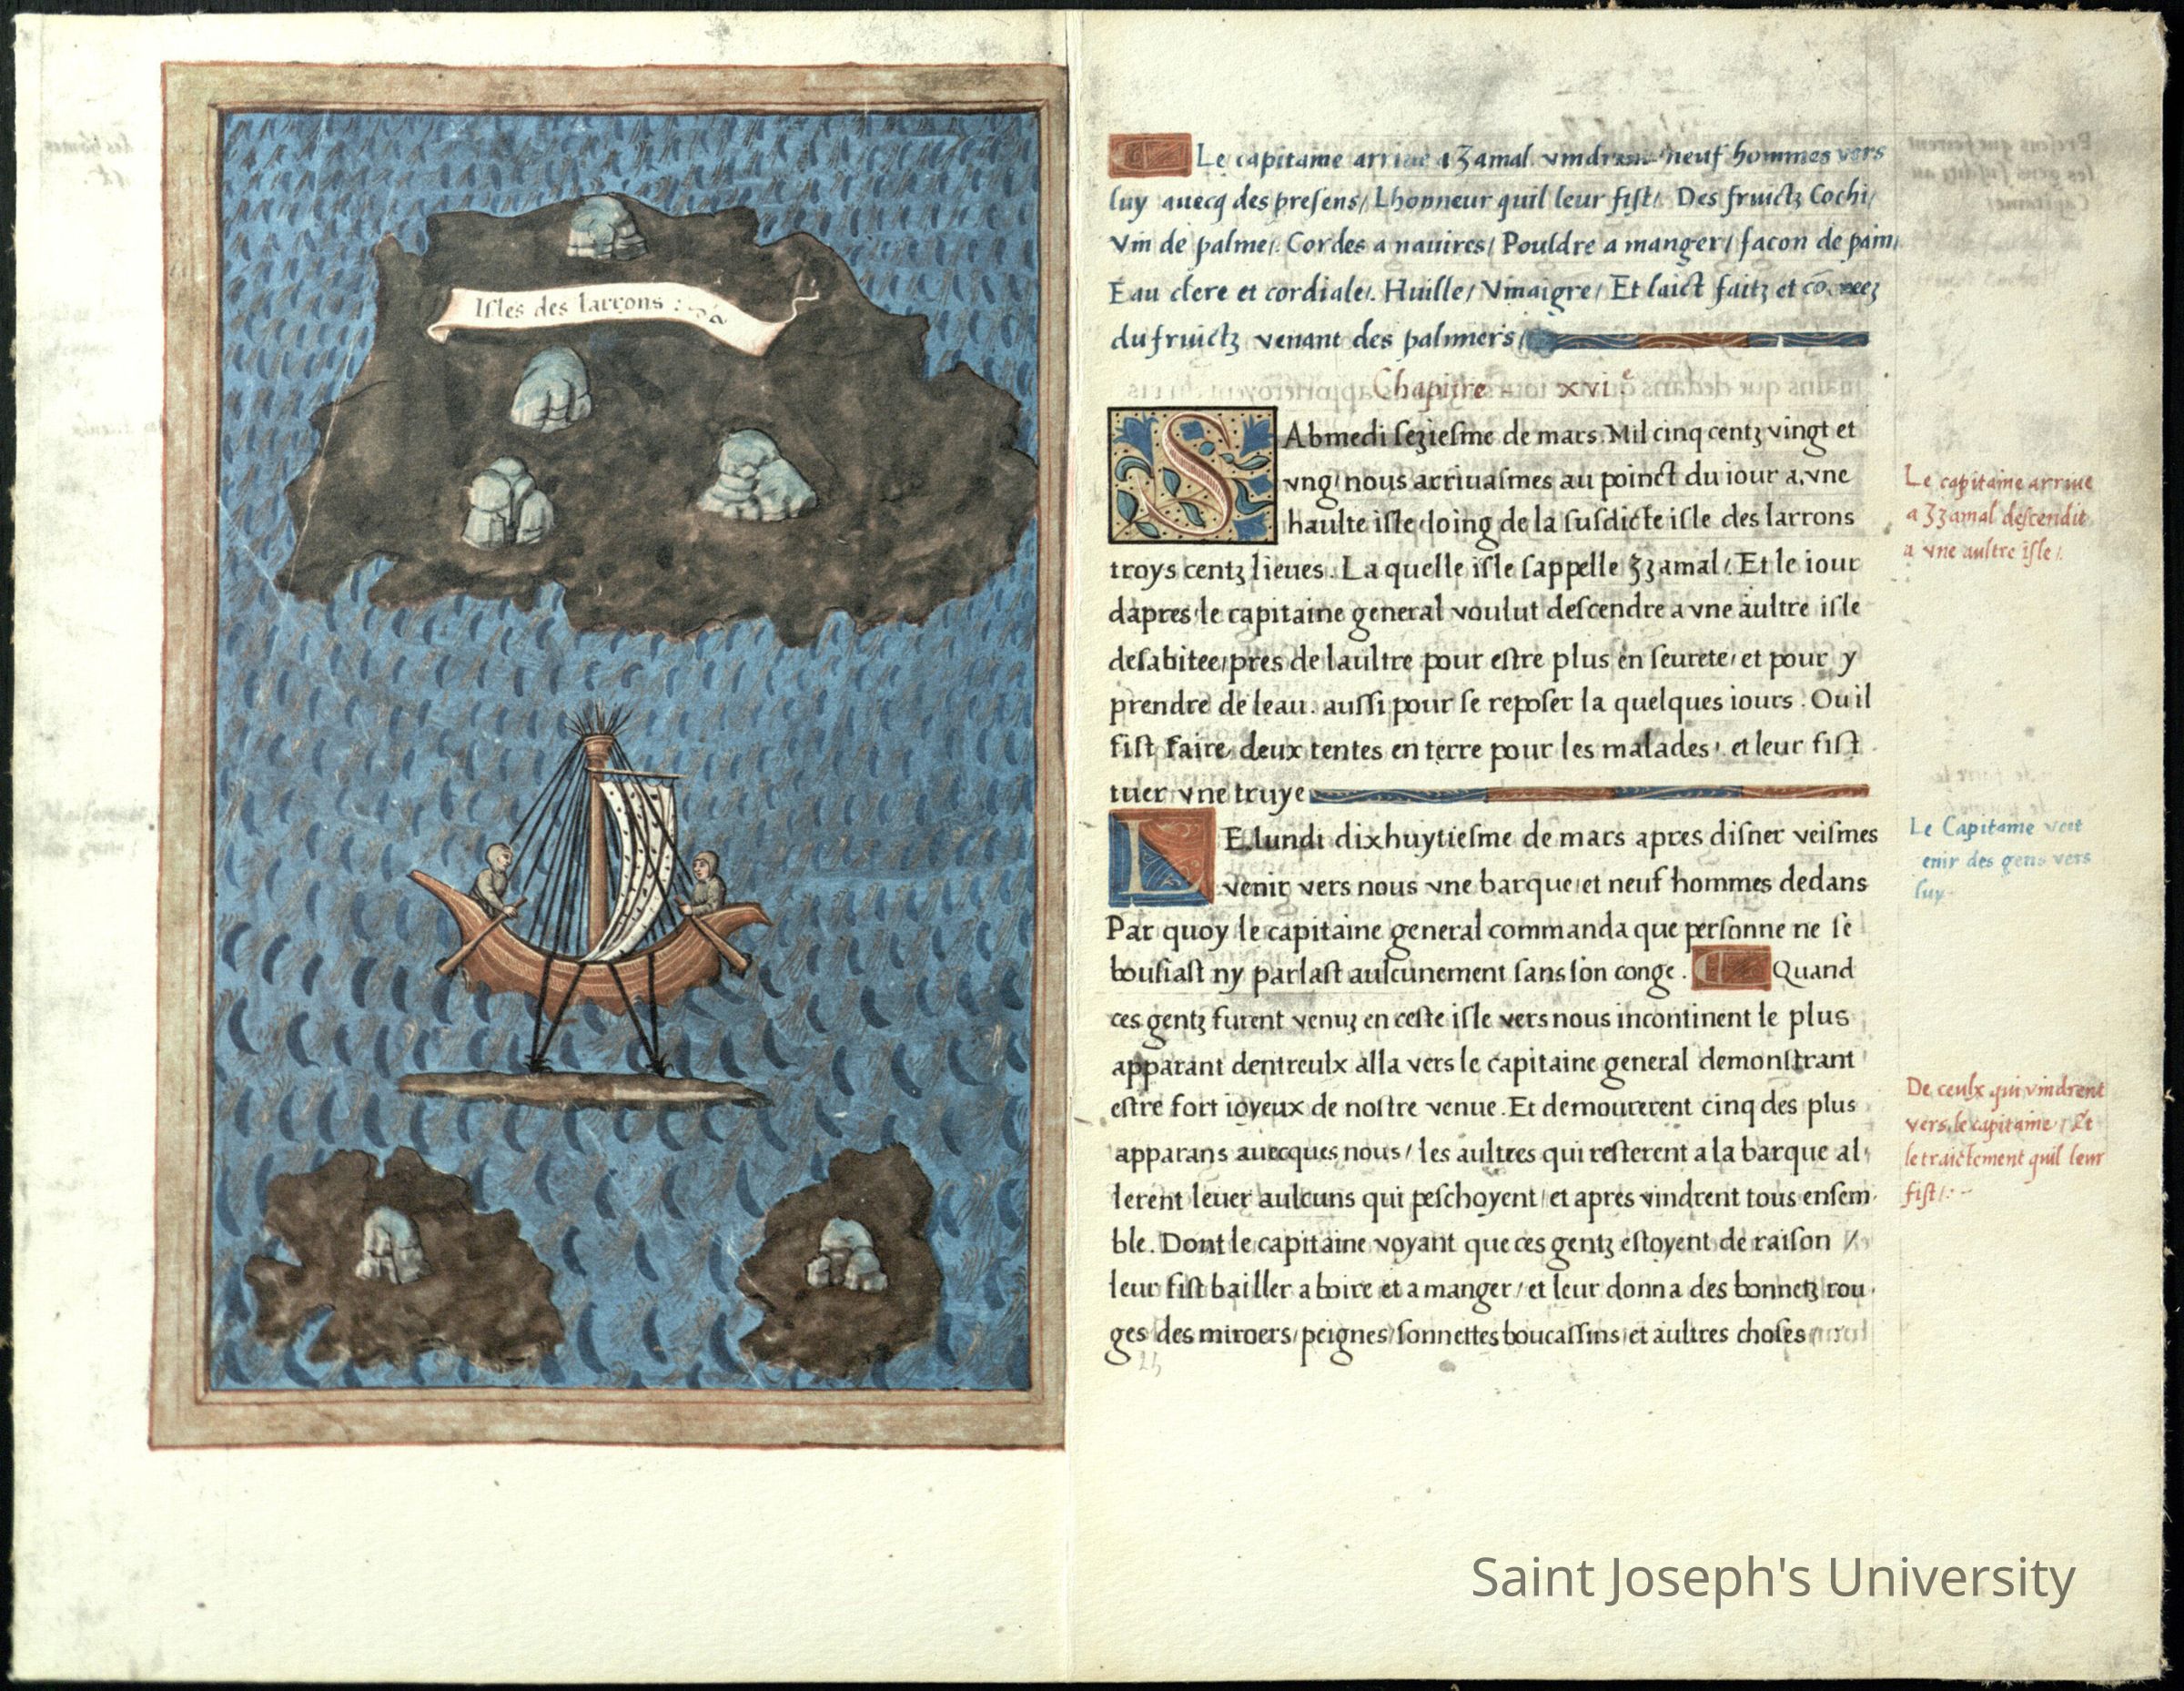 Isles des larrons :
Le capitame arriue a Zamal vmdrent neuf hommes vers
luy auecq des presens/ Lhonneur quil leur fist/. Des fruictz Cochi/
Vin de palme/. Cordes a nauires/ Pouldre a manger/ facon de pain/
Eau clere et cordiale/. Huille/ Vinaigre/ Et laict faitz et
du fruictz venant des palmiers/
Chapitre xvi.e
SAbmedi seziesme de mars. Mil cinq centz vingt et
vng/ nous arriuasmes au poinct du iour a vne
haulte isle loing de la susdicte isle des larrons
troys centz lieues. La quelle isle sappelle Zzamal/ Et le iour
dapres le capitaine general voulut descendre a vne aultre isle
desabitee/ pres de laultre pour estre plus en seurete/ et pour y
prendre de leau. aussi pour se reposer la quelques iours. Ou il
fist faire deux tentes en terre pour les malades/ et leur fist
tuer vne truye
LE lundi dixhuytiesme de mars apres disner veismes
venir vers nous vne barque/ et neuf hommes dedans
Par quoy le capitaine general commanda que personne ne se
bousiast ny parlast aulcunement sans son conge. Quand
ces gentz furent venuz en ceste isle vers nous incontinent le plus
apparant dentreulx alla vers le capitaine general demonstrant
estre fort ioyeux de nostre venue. Et demourerent cinq des plus
apparans auecques nous/ les aultres qui resterent a la barque al/
lerent leuer aulcuns qui peschoyent/ et apres vindrent tous ensem/
ble. Dont le capitaine voyant que ces gentz estoyent de raison /
leur fist bailler a boire et a manger/ et leur donna des bonnetz rou/
ges des miroers/ peignes/ sonnettes boucassins/ et aultres choses
Le capitaine arriue
a Zzamal descendit
a vne aultre isle/.
Le Capitame veit
enir des gens vers
luy.
De ceulx qui vindrent
vers le capitaine/ Et
le traictement quil leur
fist/.
Saint Joseph's University